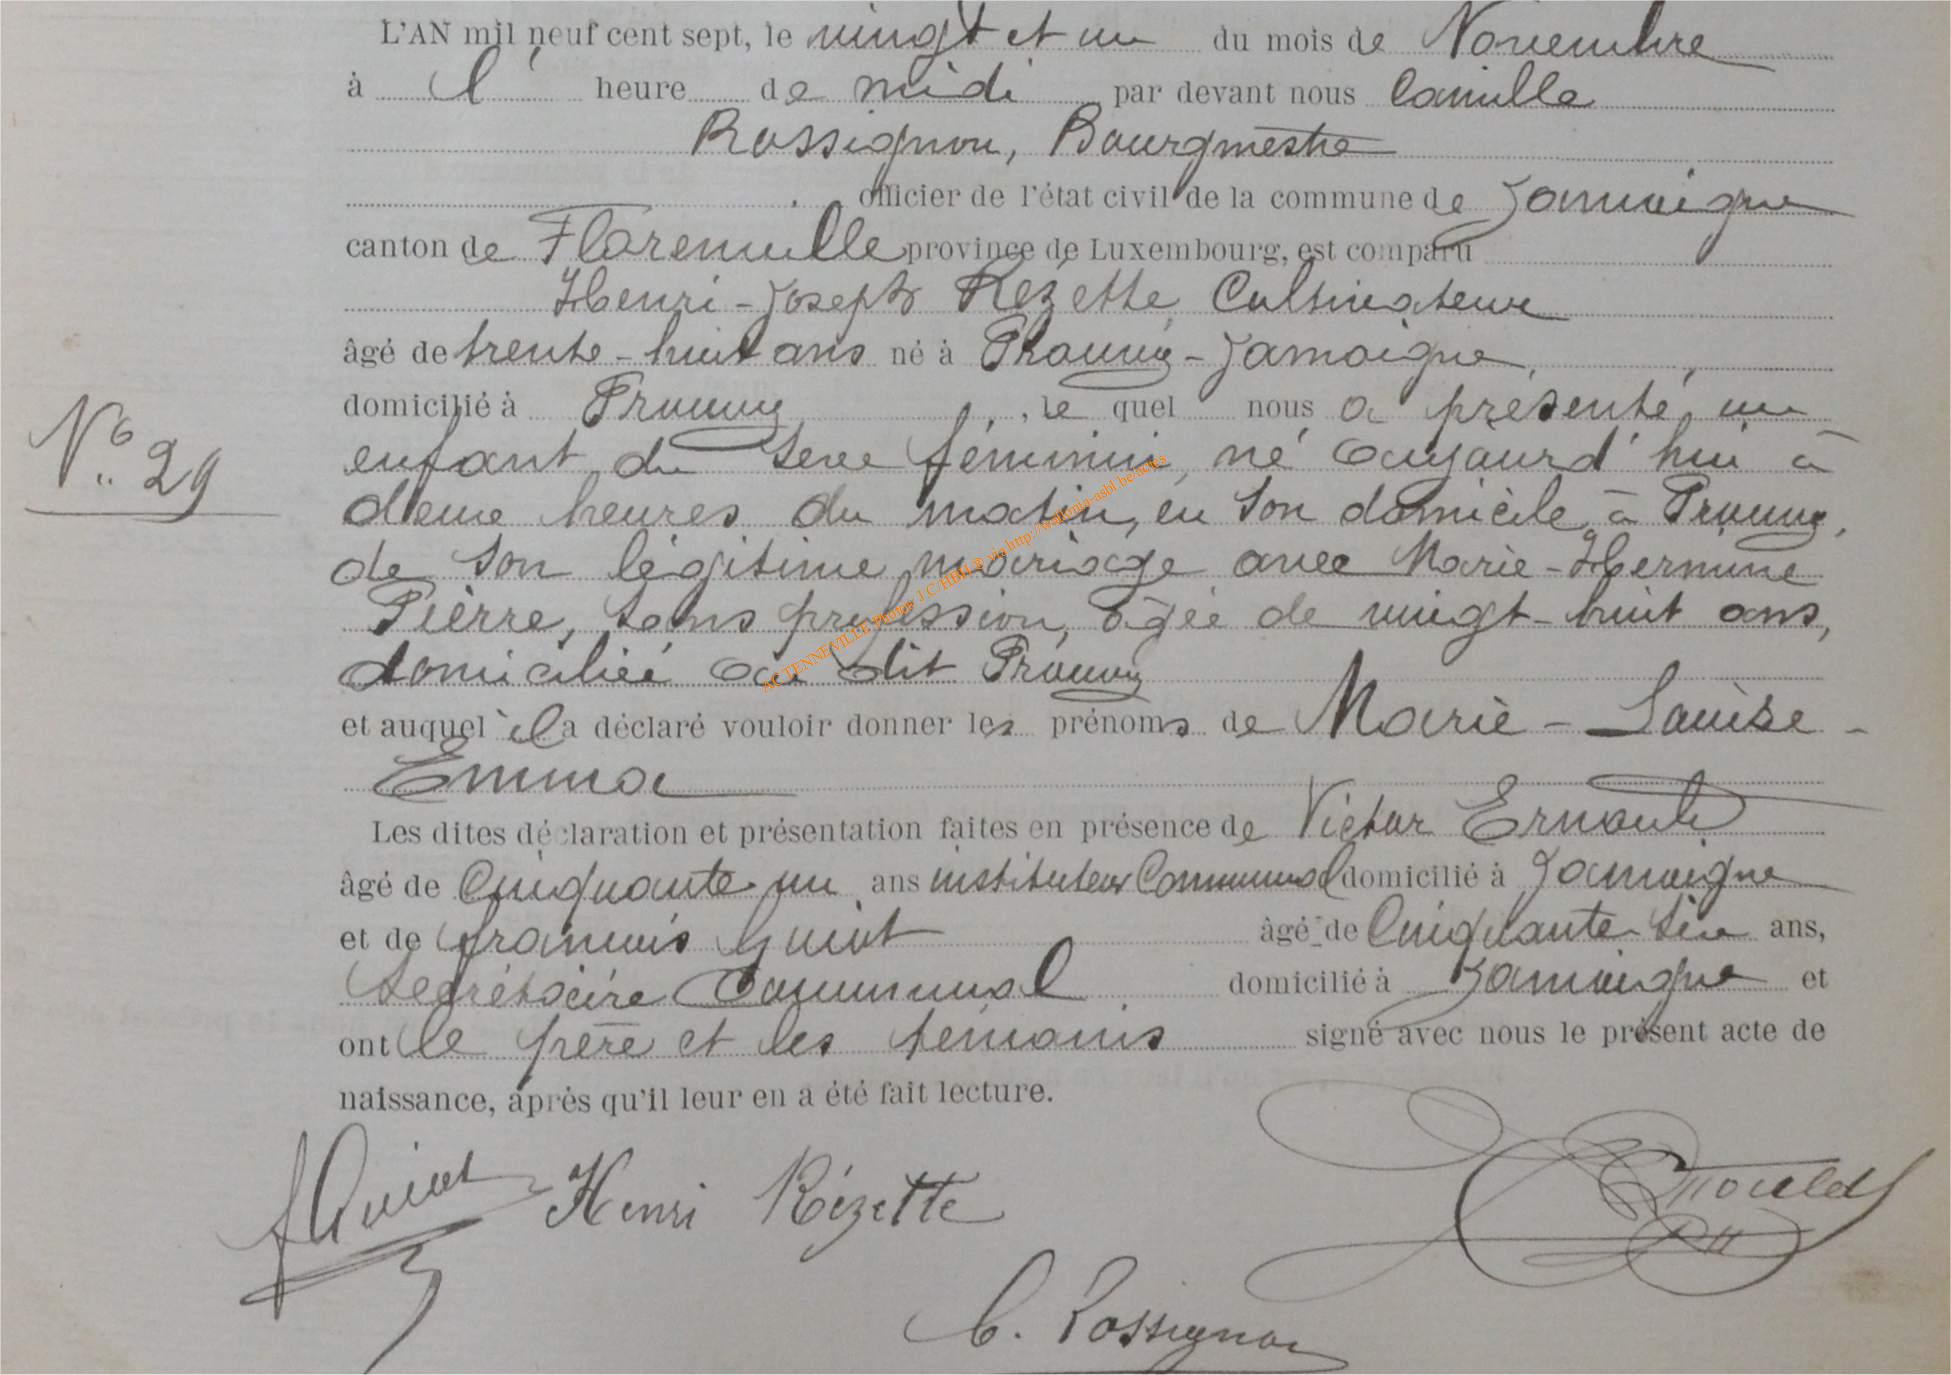 L'AN mil neuf cent sept, le vingt et un du mois de Novembre
à l' heure de midi par devant nous Camille
Rossignon, Bourgmestre
officier de l'état civil de la commune de Jamoigne
canton de Florenville province de Luxembourg, est comparu
Henri-Joseph Rézette, Cultivateur
âgé de trente-huit ans né à Prouvy-Jamoigne,
domicilié à Prouvy, le quel nous a présenté, un
enfant du sexe féminin, né aujourd'hui à
deux heures du matin, en son domicile, à Prouvy,
de son légitime mariage avec Marie-Hermine
Pierre, sans profession, âgée de vingt-huit ans,
domiciliée au dit Prouvy
et auquel il a déclaré vouloir donner les prénoms de Marie-Louise-
Emma
Les dites déclaration et présentation faites en présence de Victor
âgé de Cinquante un ans instituteur Communal domicilié à Jamoigne
et de François Guiot âgé de Cinquante-six ans,
Secrétaire Communal domicilié à Jamoigne et
ont le père et les témoins signé avec nous le présent acte de
naissance, après qu'il leur en a été fait lecture.
N° 29
ACTENNEVILLE Photos J C HBH ® via http://wallonia-asbl.be.actes
f Guiot Henri Rézette
C. Rossignon